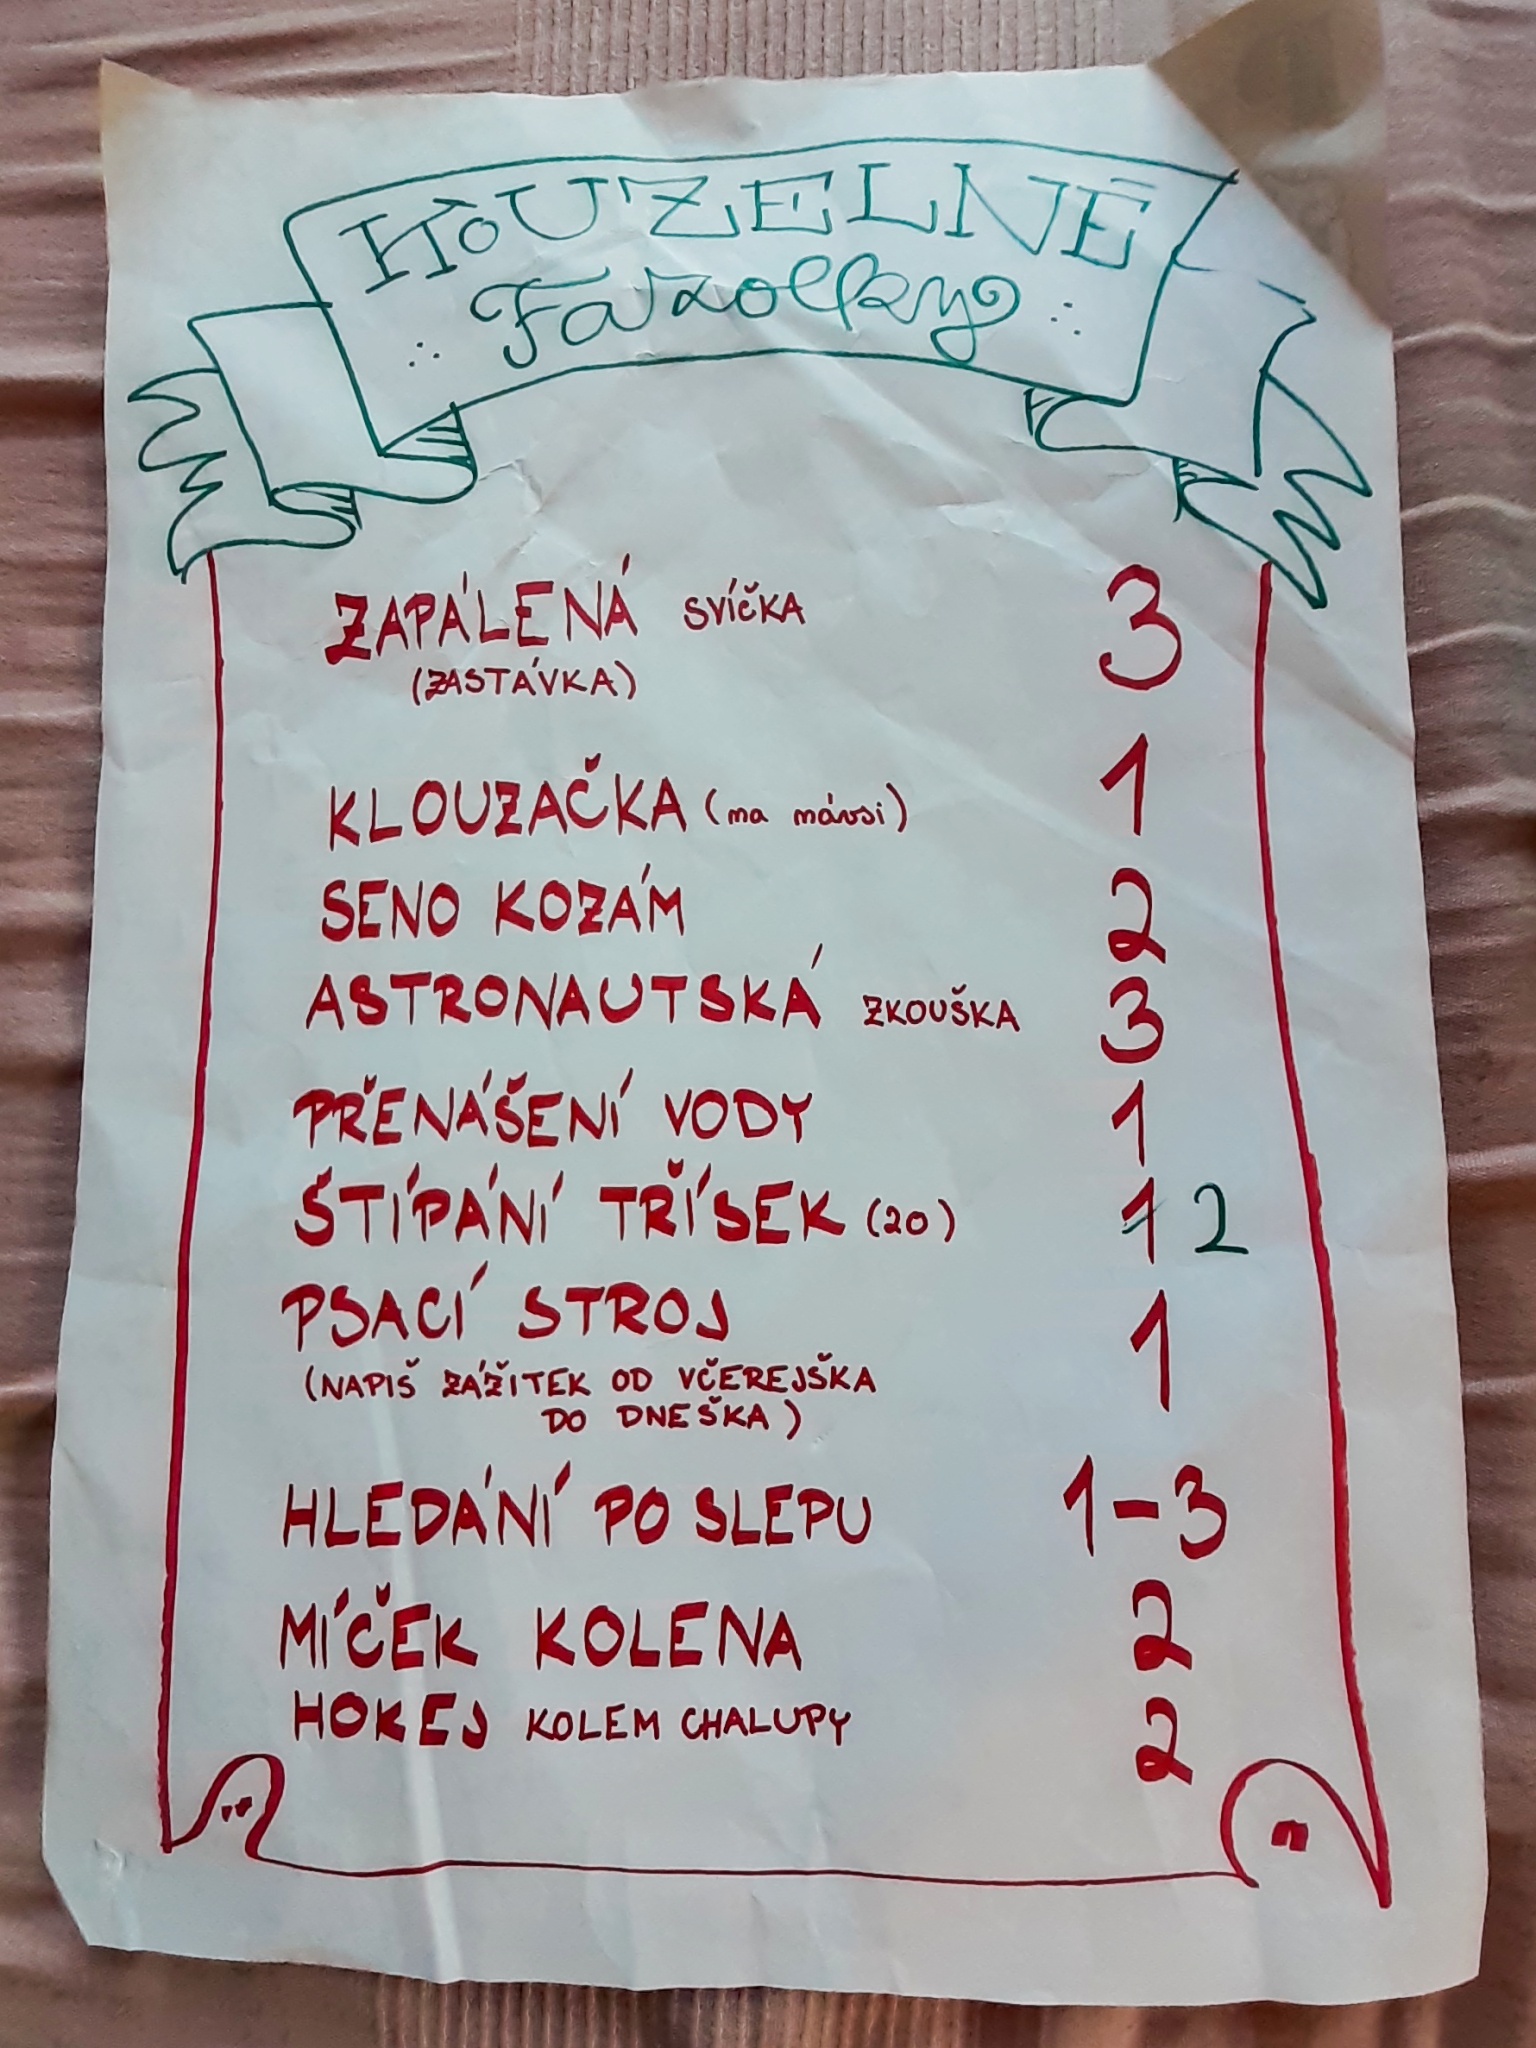 HOUZELNÉ
Fazolky
ZAPÁLENÁ SVÍČKA 3
(ZASTÁVKA)
KLOUZAČKA (na návsi) 1
SENO KOZÁM 2
ASTRONAUTSKÁ ZKOUŠKA 3
PŘENÁŠENÍ VODY 1
ŠTÍPÁNÍ TŘÍSEK (20) 1 2
PSACÍ STROJ 1
(NAPIŠ ZÁŽITEK OD VČEREJŠKA
DO DNEŠKA)
HLEDÁNÍ PO SLEPU 1-3
MÍČEK KOLENA 2
HOKEJ KOLEM CHALUPY 2